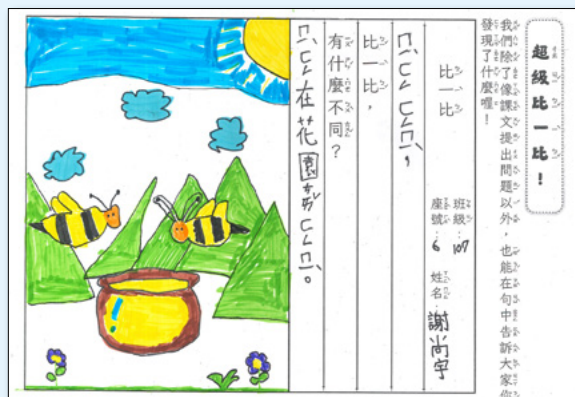 超級比一比！
我們除了像課文提出問題以外，也能在句中告訴大家你
發現了什麼喔！
比一比
班級：107
座號：6 姓名：謝尚宇
ㄇㄧˋㄈㄥㄈㄥㄇㄧˋ，
比一比，
有什麼不同？
ㄇㄧˋㄈㄥ在花園ㄘㄞˇㄈㄥㄇㄧˋ。